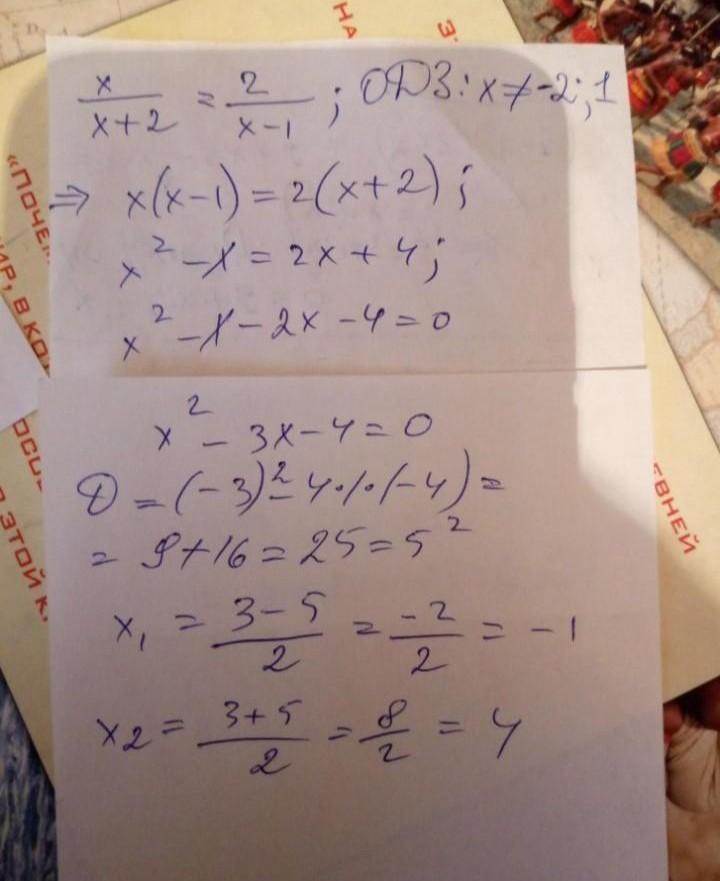 x/(x+2) = 2/(x-1); ОДЗ: x≠-2; 1
⇒ x(x-1)=2(x+2);
x² -x = 2x + 4;
x² -x-2x-4=0
x² - 3x-4=0
D = (-3)² - 4·1·(-4) =
= 9+16=25=5²
x₁ = (3-5)/2 = -2/2 = -1
x₂ = (3+5)/2 = 8/2 = 4
НА
«ПОЧЕ
ИР, В КО
ЭТОЙ К
ЕВНЕЙ